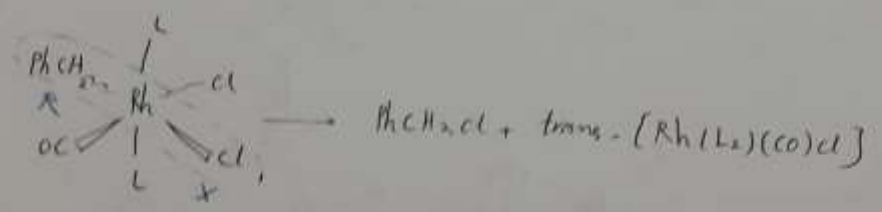 L
PhCH₂
Cl
Rh
R
OC
Cl,
L
x
→ PhCH₂Cl + trans-[Rh(L₂)(CO)Cl]